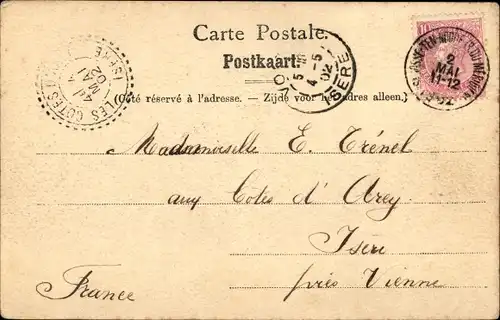 Carte Postale.
Postkaart.
(Côté réservé à l'adresse. — Zijde voor het adres alleen.)
10
2
MAI
11-12
5
4-5
02
ISERE
4
MAI
02
ISERE
LES COTES D'
Mademoiselle E. Trénel
aux Cotes d'Arey
Isère
France
près Vienne